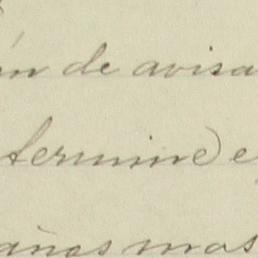 ón de avisa
termine) e
años mas